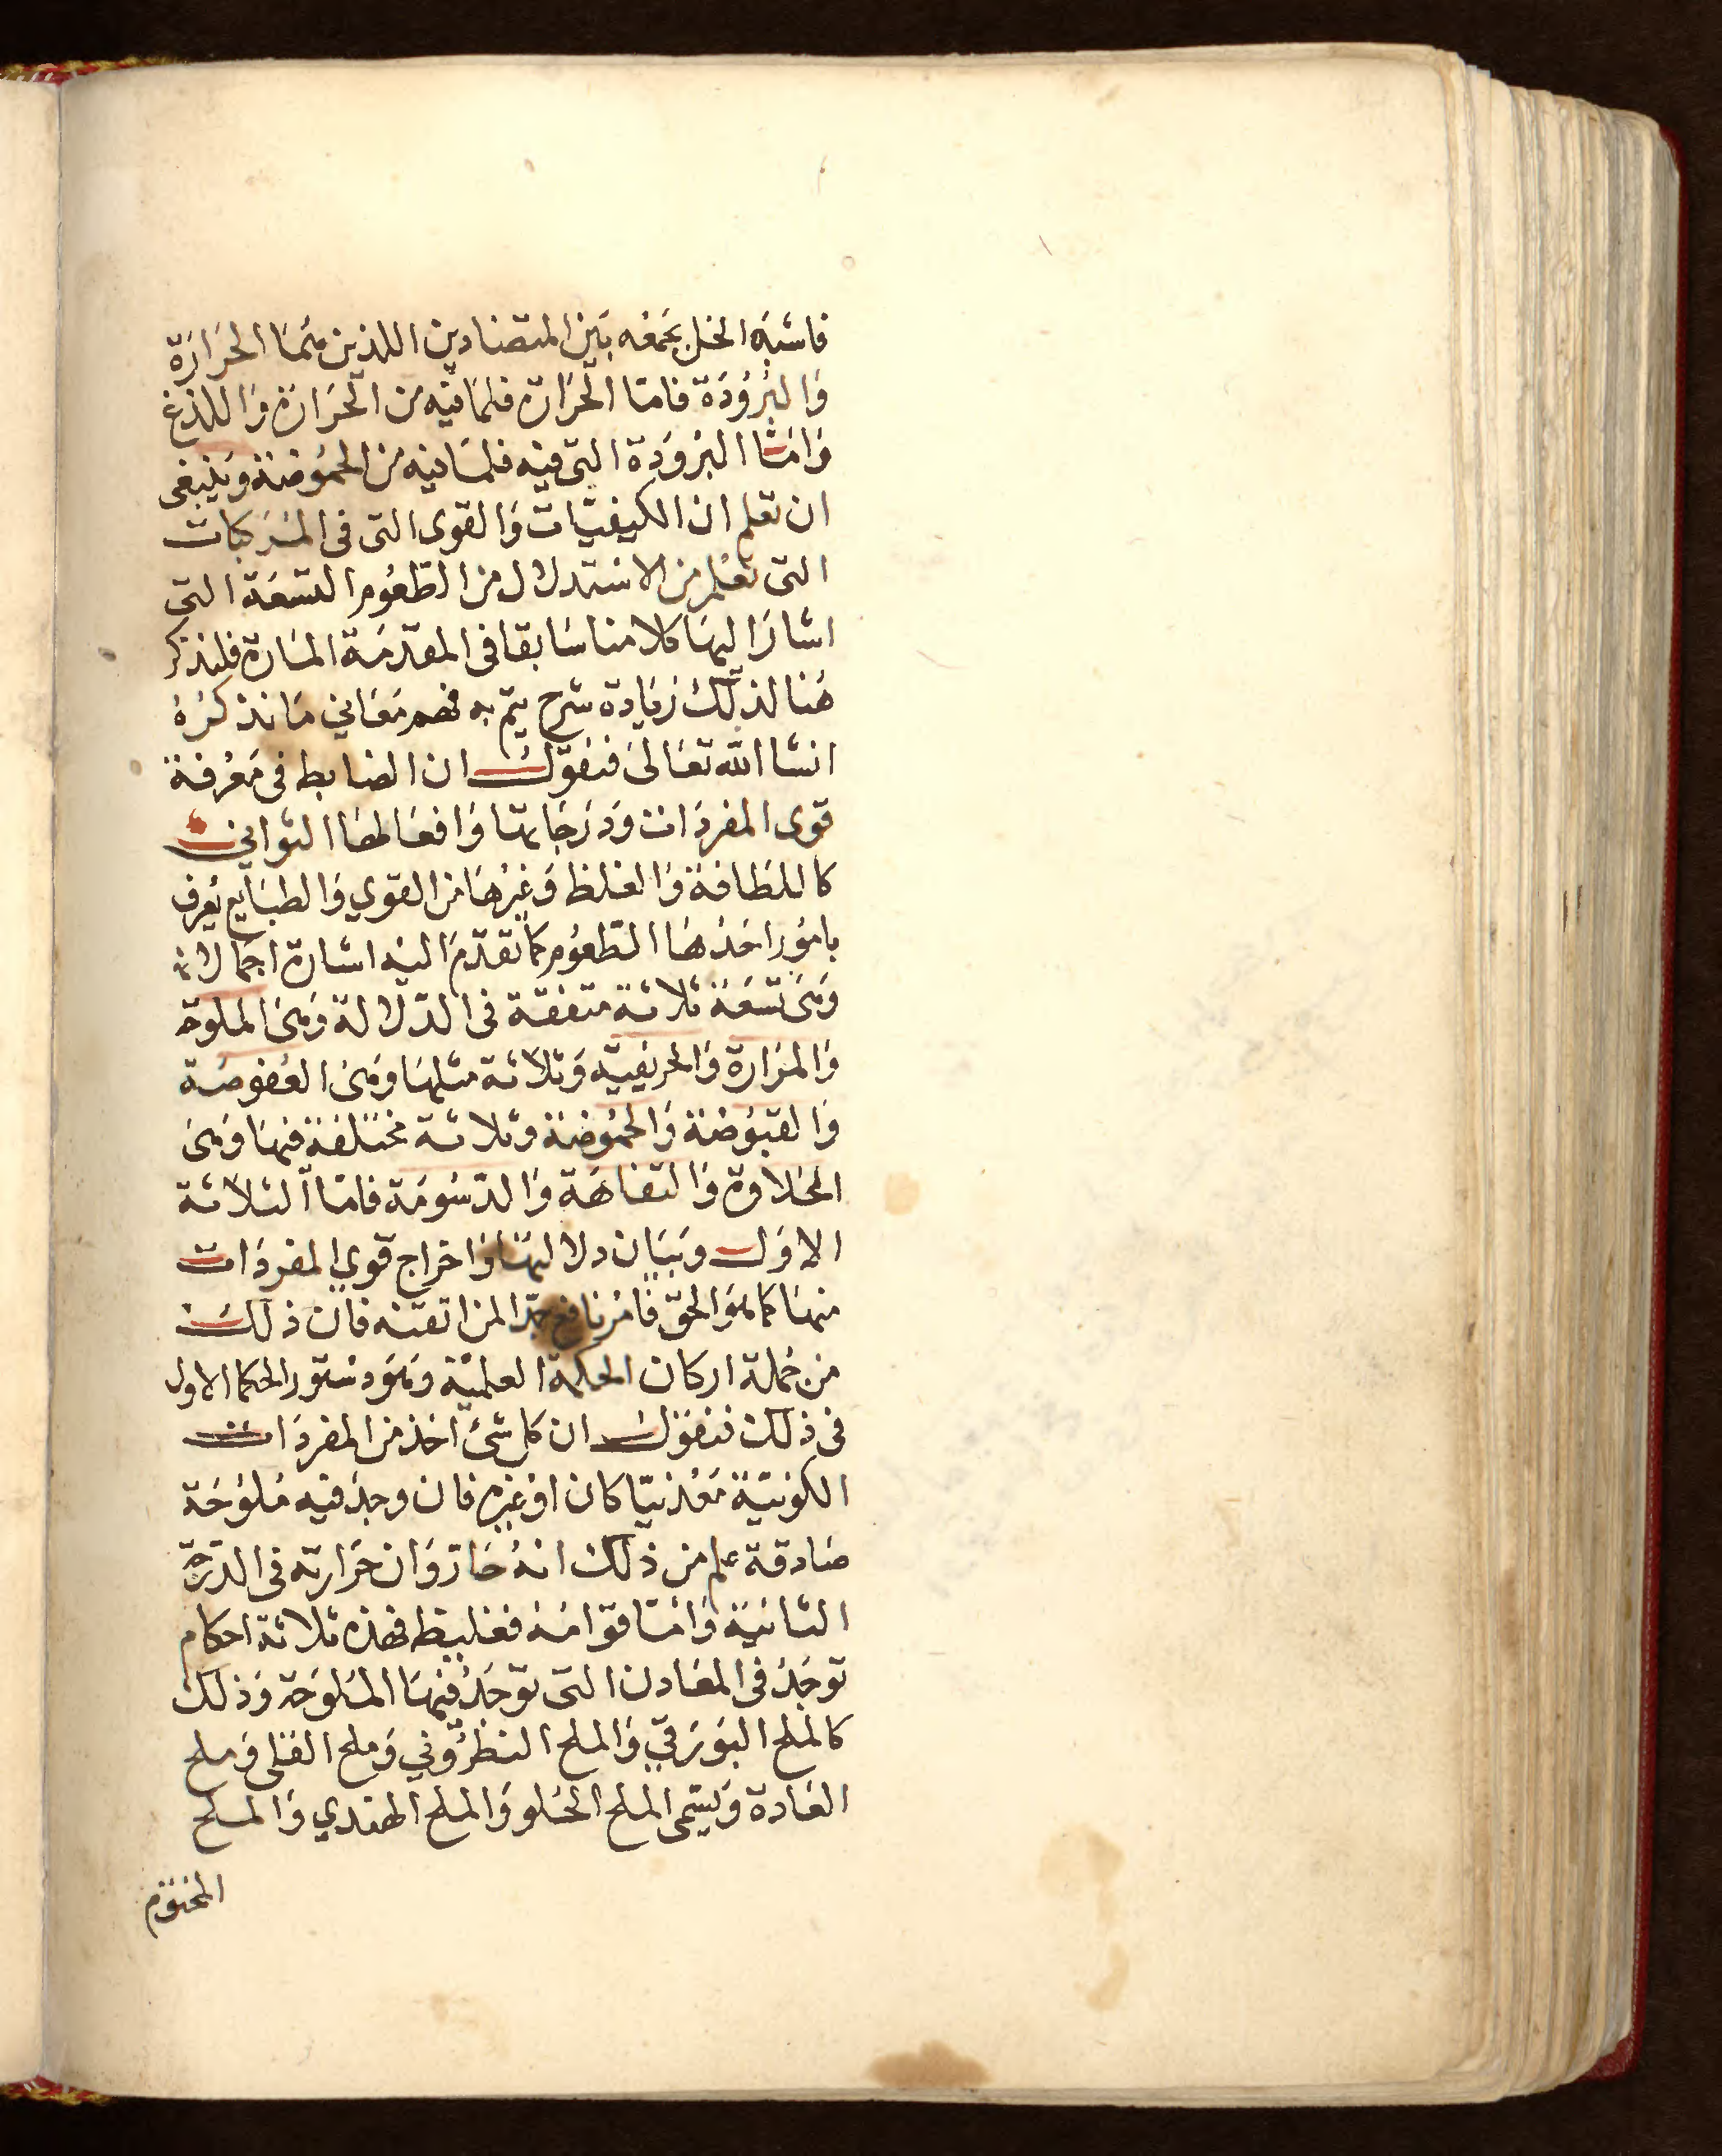 فاشبه الخل بجمعه بين المتضادين اللذين هما الحرارة
والبرودة فاما الحرارة فلما فيه من الحرارة واللذع
واما البرودة التي فيه فلما فيه من الحموضة وينبغى
ان تعلم ان الكيفيات والقوى التى فى المركبات
التى تعلم من الاستدلال من الطعوم التسعة التى
اشار اليها كلامنا سابقا فى المقدمة المارة فلنذكر
هنا لذلك زيادة شرح يتم به فهم معاني ما نذكره
انشا الله تعالى فنقول ان الضابط فى معرفة
قوى المفردات ودرجاتها وافعالها الثواني
كاللطافة والغلظ وغيرها من القوي والطبايع يعرف
بامور احدها الطعوم كما تقدم اليه اشارة اجمالا
وهى تسعة ثلاثة متفقة فى الدلالة وهى الملوحة
والمرارة والحريفية وثلاثة مثلها وهى العفوصة
والقبوضة والحموضة وثلاثة مختلفة فيها وهى
الحلاوة والتفاهة والدسومة فاما الثلاثة
الاول وبيان دلالتها واخراج قوي المفردات
منها كما هو الحق فامر نافع جدا لمن اتقنه فان ذلك
من جملة اركان الحكمة العلمية وهو دستور الحكما الاول
فى ذلك فنقول ان كل شئ اخذ من المفردات
الكونية معدنيا كان او غيره فان وجد فيه ملوحة
صادقة علم من ذلك انه حار وان حرارته فى الدرجة
الثانية واما قوامه فغليظ فهذه ثلاثة احكام
توجد فى المعادن التى توجد فيها الملوحة وذلك
كالملح البورقي والملح النطروني وملح القلى وملح
العادة ويسمى الملح الحلو والملح الهندي والملح
المختوم